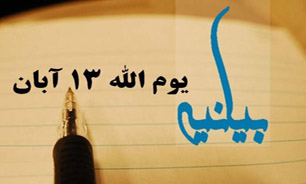 بیانیه
یوم الله ۱۳ آبان